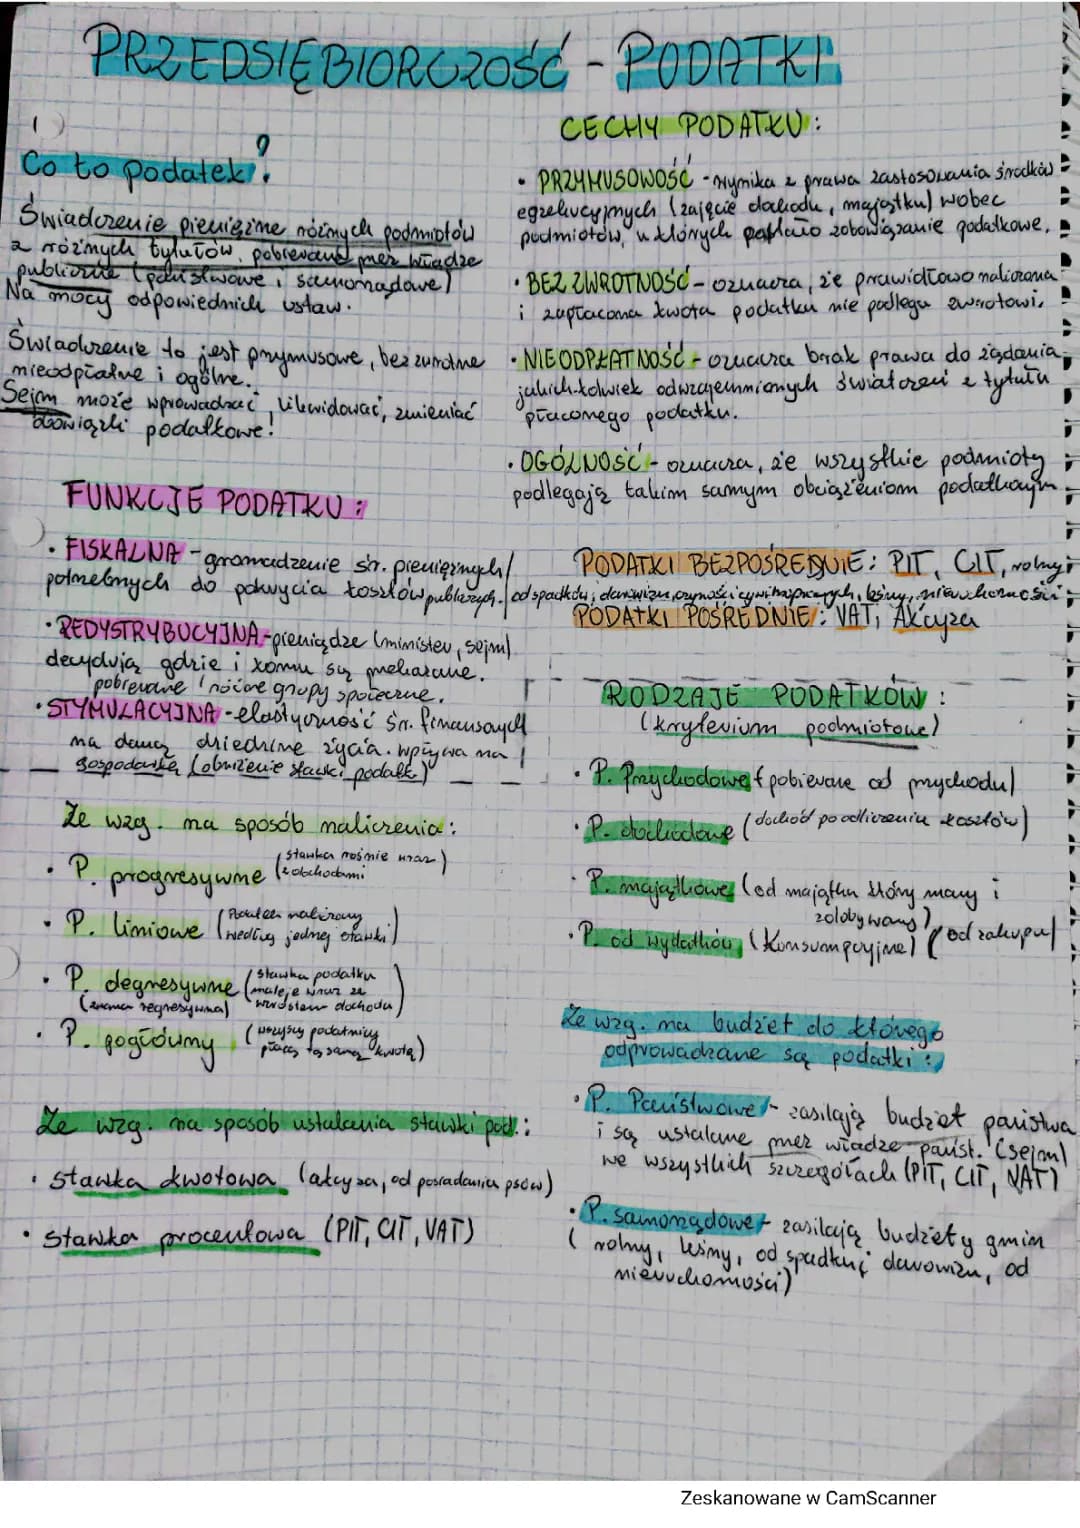 PRZEDSIĘBIORCZOŚĆ - PODATKI
1)
Co to podatek?
Świadczenie pieniężne różnych podmiotów
z różnych tytułów, pobierane przez władze
publiczne (państwowe i samorządowe)
Na mocy odpowiednich ustaw.
Świadczenie to jest przymusowe, bezzwrotne
nieodpłatne i ogólne.
Sejm może wprowadzać, likwidować, zmieniać
obowiązki podatkowe!
FUNKCJE PODATKU:
• FISKALNA - gromadzenie śr. pieniężnych
potrzebnych do pokrycia kosztów publicznych.
• REDYSTRYBUCYJNA - pieniądze (minister, sejm)
decydują gdzie i komu są przekazane.
pobierane różne grupy społeczne.
• STYMULACYJNA - elastyczność śr. finansowych
na daną dziedzinę życia. wpływa na
gospodarkę (obniżenie stawki podatk.)
Ze wzg. na sposób naliczenia:
• P. progresywne (stawka rośnie wraz
z dochodami)
• P. liniowe (Podatek naliczony
według jednej stawki)
• P. degresywne (stawka podatku
maleje wraz ze
(zwane regresywna) wzrostem dochodu)
• P. pogłówny (wszyscy podatnicy
płacą tą samą kwotę)
Ze wzg. na sposób ustalania stawki pod.:
• stawka kwotowa (akcyza, od posiadania psów)
• stawka procentowa (PIT, CIT, VAT)
CECHY PODATKU:
• PRZYMUSOWOŚĆ - wynika z prawa zastosowania środków
egzekucyjnych (zajęcie dochodu, majątku) wobec
podmiotów, u których powstało zobowiązanie podatkowe.
• BEZZWROTNOŚĆ - oznacza, że prawidłowo naliczona
i zapłacona kwota podatku nie podlega zwrotowi.
• NIEODPŁATNOŚĆ - oznacza brak prawa do żądania
jakichkolwiek odwzajemnionych świadczeń z tytułu
płaconego podatku.
• OGÓLNOŚĆ - oznacza, że wszystkie podmioty
podlegają takim samym obciążeniom podatkowym.
PODATKI BEZPOŚREDNIE: PIT, CIT, rolny
od spadków, darowizn, czynności cywilnoprawnych, leśny, nieruchomości
PODATKI POŚREDNIE: VAT, Akcyza
RODZAJE PODATKÓW:
(kryterium podmiotowe)
• P. Przychodowe (pobierane od przychodu)
• P. dochodowe (dochód po odliczeniu kosztów)
• P. majątkowe (od majątku który mamy i
zdobywamy)
• P. od wydatków (Konsumpcyjne) (od zakupu)
Ze wzg. na budżet do którego
odprowadzane są podatki:
• P. Państwowe - zasilają budżet państwa
i są ustalane przez władze państ. (sejm)
we wszystkich szczegółach (PIT, CIT, VAT)
• P. samorządowe - zasilają budżety gmin
(rolny, leśny, od spadku i darowizn, od
nieruchomości)
Zeskanowane w CamScanner